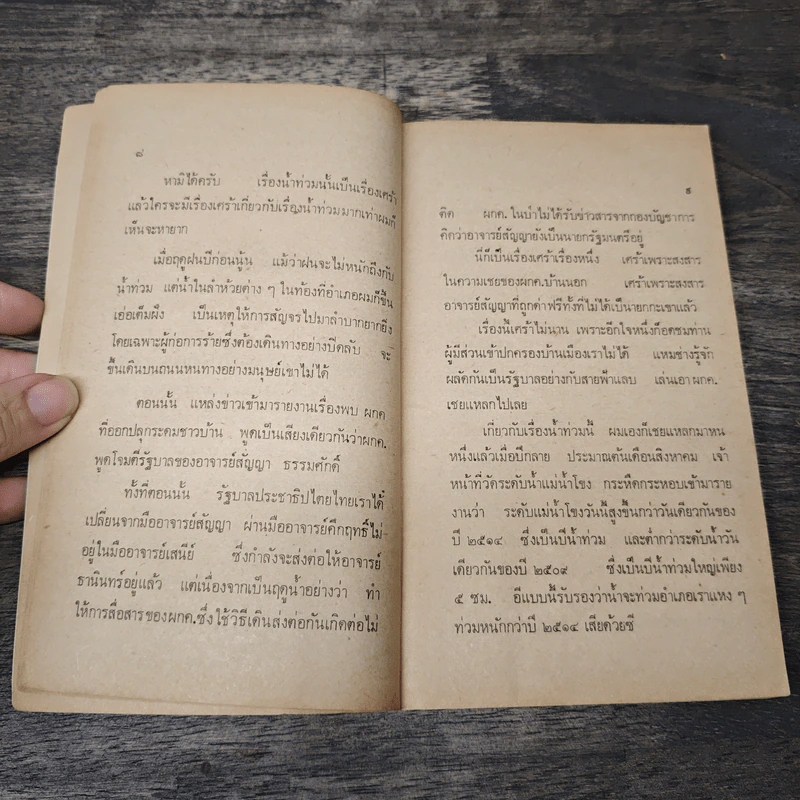 ๘
หามิได้ครับ เรื่องน้ำท่วมนั้นเป็นเรื่องเศร้า
แล้วใครจะมีเรื่องเศร้าเกี่ยวกับเรื่องน้ำท่วมมากเท่าผมก็
เห็นจะหายาก
เมื่อฤดูฝนปีก่อนนู้น แม้ว่าฝนจะไม่หนักถึงกับ
น้ำท่วม แต่น้ำในลำห้วยต่าง ๆ ในท้องที่อำเภอผมก็ขึ้น
เอ่อเต็มฝั่ง เป็นเหตุให้การสัญจรไปมาลำบากยากยิ่ง
โดยเฉพาะผู้ก่อการร้ายซึ่งต้องเดินทางอย่างปิดลับ จะ
ขึ้นเดินบนถนนหนทางอย่างมนุษย์เขาไม่ได้
ตอนนั้น แหล่งข่าวเข้ามารายงานเรื่องพบ ผกค
ที่ออกปลุกระดมชาวบ้าน พูดเป็นเสียงเดียวกันว่าผกค.
พูดโจมตีรัฐบาลของอาจารย์สัญญา ธรรมศักดิ์
ทั้งที่ตอนนั้น รัฐบาลประชาธิปไตยไทยเราได้
เปลี่ยนจากมืออาจารย์สัญญา ผ่านมืออาจารย์คึกฤทธิ์ไป
อยู่ในมืออาจารย์เสนีย์ ซึ่งกำลังจะส่งต่อให้อาจารย์
ธานินทร์อยู่แล้ว แต่เนื่องจากเป็นฤดูน้ำอย่างว่า ทำ
ให้การสื่อสารของผกค.ซึ่งใช้วิธีเดินส่งต่อกันเกิดต่อไม่
๙
ติด ผกค. ในป่าไม่ได้รับข่าวสารจากกองบัญชาการ
คิดว่าอาจารย์สัญญายังเป็นนายกรัฐมนตรีอยู่
นี่ก็เป็นเรื่องเศร้าเรื่องหนึ่ง เศร้าเพราะสงสาร
ในความเชยของผกค.บ้านนอก เศร้าเพราะสงสาร
อาจารย์สัญญาที่ถูกด่าฟรีทั้งที่ไม่ได้เป็นนายกกะเขาแล้ว
เรื่องนี้เศร้าไม่นาน เพราะอีกใจหนึ่งก็อดชมท่าน
ผู้มีส่วนเข้าปกครองบ้านเมืองเราไม่ได้ แหมช่างรู้จัก
ผลัดกันเป็นรัฐบาลอย่างกับสายฟ้าแลบ เล่นเอา ผกค.
เชยแหลกไปเลย
เกี่ยวกับเรื่องน้ำท่วมนี้ ผมเองก็เชยแหลกมาหน
หนึ่งแล้วเมื่อปีกลาย ประมาณต้นเดือนสิงหาคม เจ้า
หน้าที่วัดระดับน้ำแม่น้ำโขง กระหืดกระหอบเข้ามาราย
งานว่า ระดับแม่น้ำโขงวันนี้สูงขึ้นกว่าวันเดียวกันของ
ปี ๒๕๑๔ ซึ่งเป็นปีน้ำท่วม และต่ำกว่าระดับน้ำวัน
เดียวกันของปี ๒๕๐๙ ซึ่งเป็นปีน้ำท่วมใหญ่เพียง
๕ ซม. อีแบบนี้รับรองว่าน้ำจะท่วมอำเภอเราแหง ๆ
ท่วมหนักกว่าปี ๒๕๑๔ เสียด้วยซี